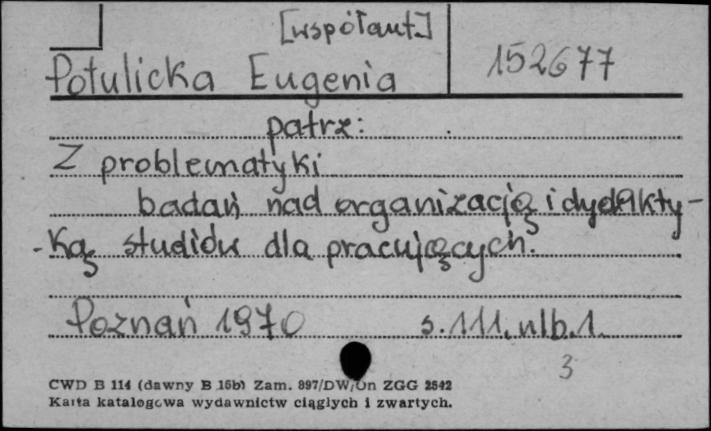 [współaut.]
Potulicka Eugenia
152677
patrz:
Z problematyki
badań nad organizacją i dydakty-
-ką studiów dla pracujących.
Poznań 1970 s. 111, nlb. 1.
3
CWD B 114 (dawny B 15b) Zam. 897/DW/Un ZGG 2542
Karta katalogowa wydawnictw ciągłych i zwartych.